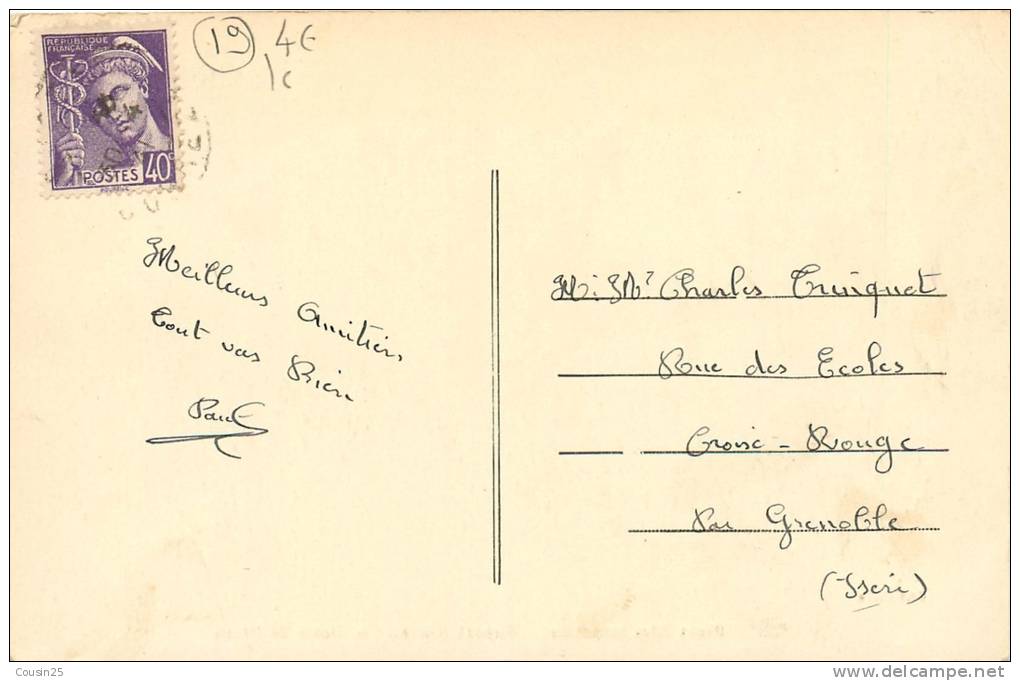 RÉPUBLIQUE
FRANÇAISE
POSTES 40c
19
4€
1c
Meilleurs Amitiés
Tout vas Bien
Paul
M. Mr Charles Trinquet
Rue des Ecoles
Croix-Rouge
Par Grenoble
(Iseri)
Cousin25
www.delcampe.net